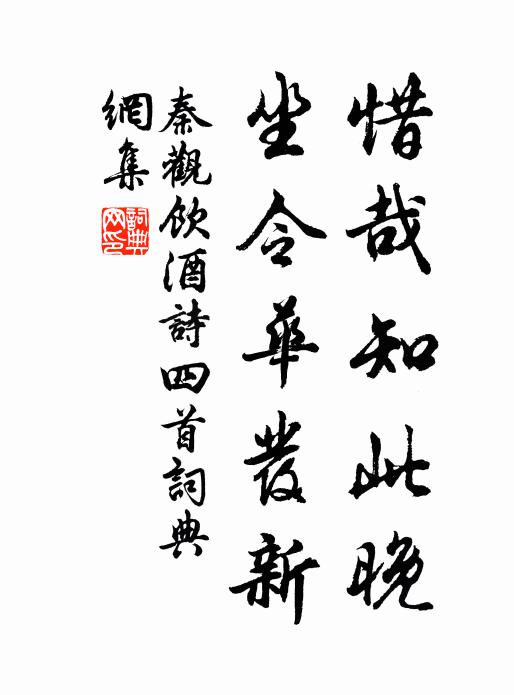 惜哉知此晚
坐令華發新
秦觀飲酒詩四首詞典
網集
詞典網印